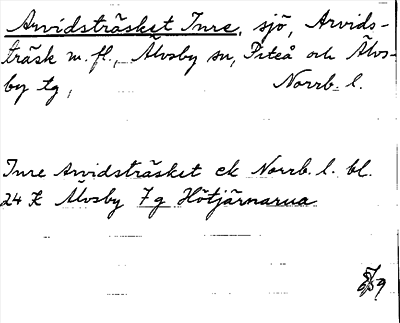 Arvidsträsket Inre, sjö, Arvids-
träsk m.fl., Älvsby sn, Piteå och Älvs-
by tg, Norrb. l.
Inre Arvidsträsket ek Norrb. l. bl.
24 K Älvsby 7g Hötjärnarna